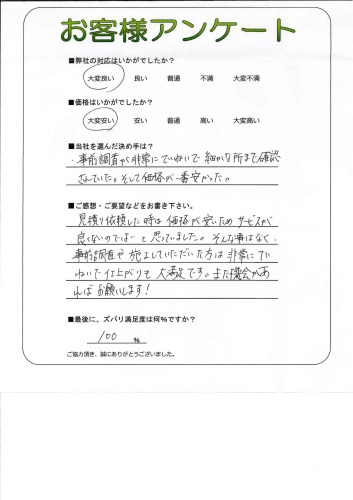 お客様アンケート
■弊社の対応はいかがでしたか？
大変良い 良い 普通 不満 大変不満
■価格はいかがでしたか？
大変安い 安い 普通 高い 大変高い
■当社を選んだ決め手は？
・事前調査が非常にていねいで細かな所まで確認
されていた。そして価格が一番安かった。
■ご感想・ご要望などをお書き下さい。
見積り依頼した時は価格が安いためサービスが
良くないのでは…と思っていました。そんな事はなく、
事前調査や施工していただいた方は非常にてい
ねいで仕上がりも大満足です。また機会があ
ればお願いします！
■最後に、ズバリ満足度は何％ですか？
100 ％
ご協力頂き、誠にありがとうございました。